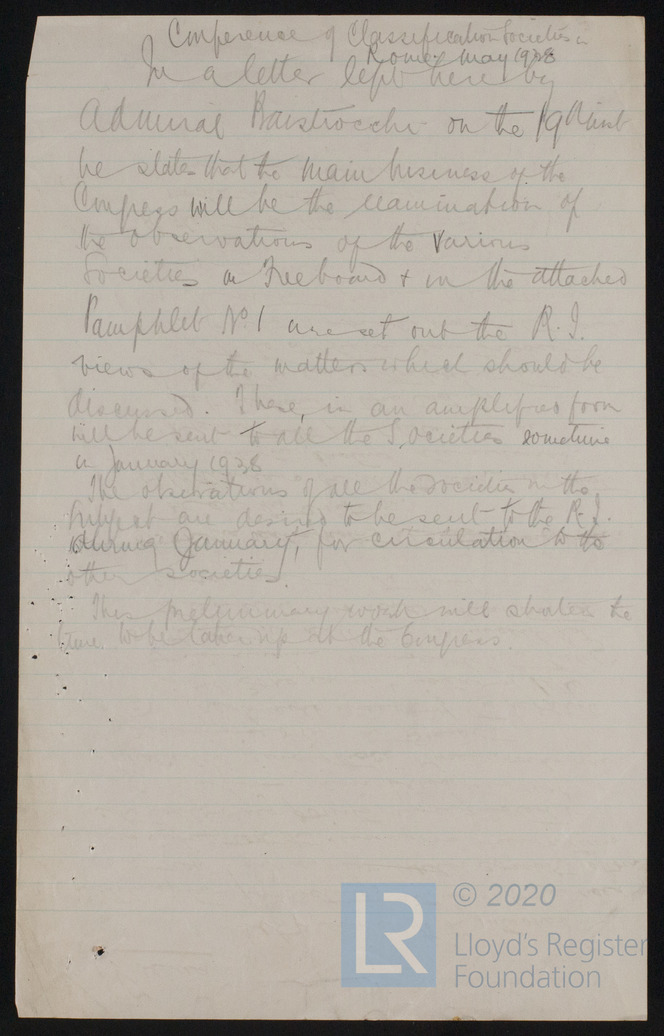 Conference of Classification Societies in
Rome. May 1938
In a letter left here by
Admiral Baistrocchi on the 19th inst
he states that the main business of the
Congress will be the examination of
the observations of the various
Societies on Freeboard & in the attached
Pamphlet No. 1 are set out the R.I.
views of the matters which should be
discussed. These, in an amplified form
will be sent to all the Societies sometime
in January 1938
The observations of all the Societies on the
subject are desired to be sent to the R.I.
during January, for circulation to the
other societies.
This preliminary work will shorten the
time to be taken up at the Congress.
LR
© 2020
Lloyd's Register
Foundation